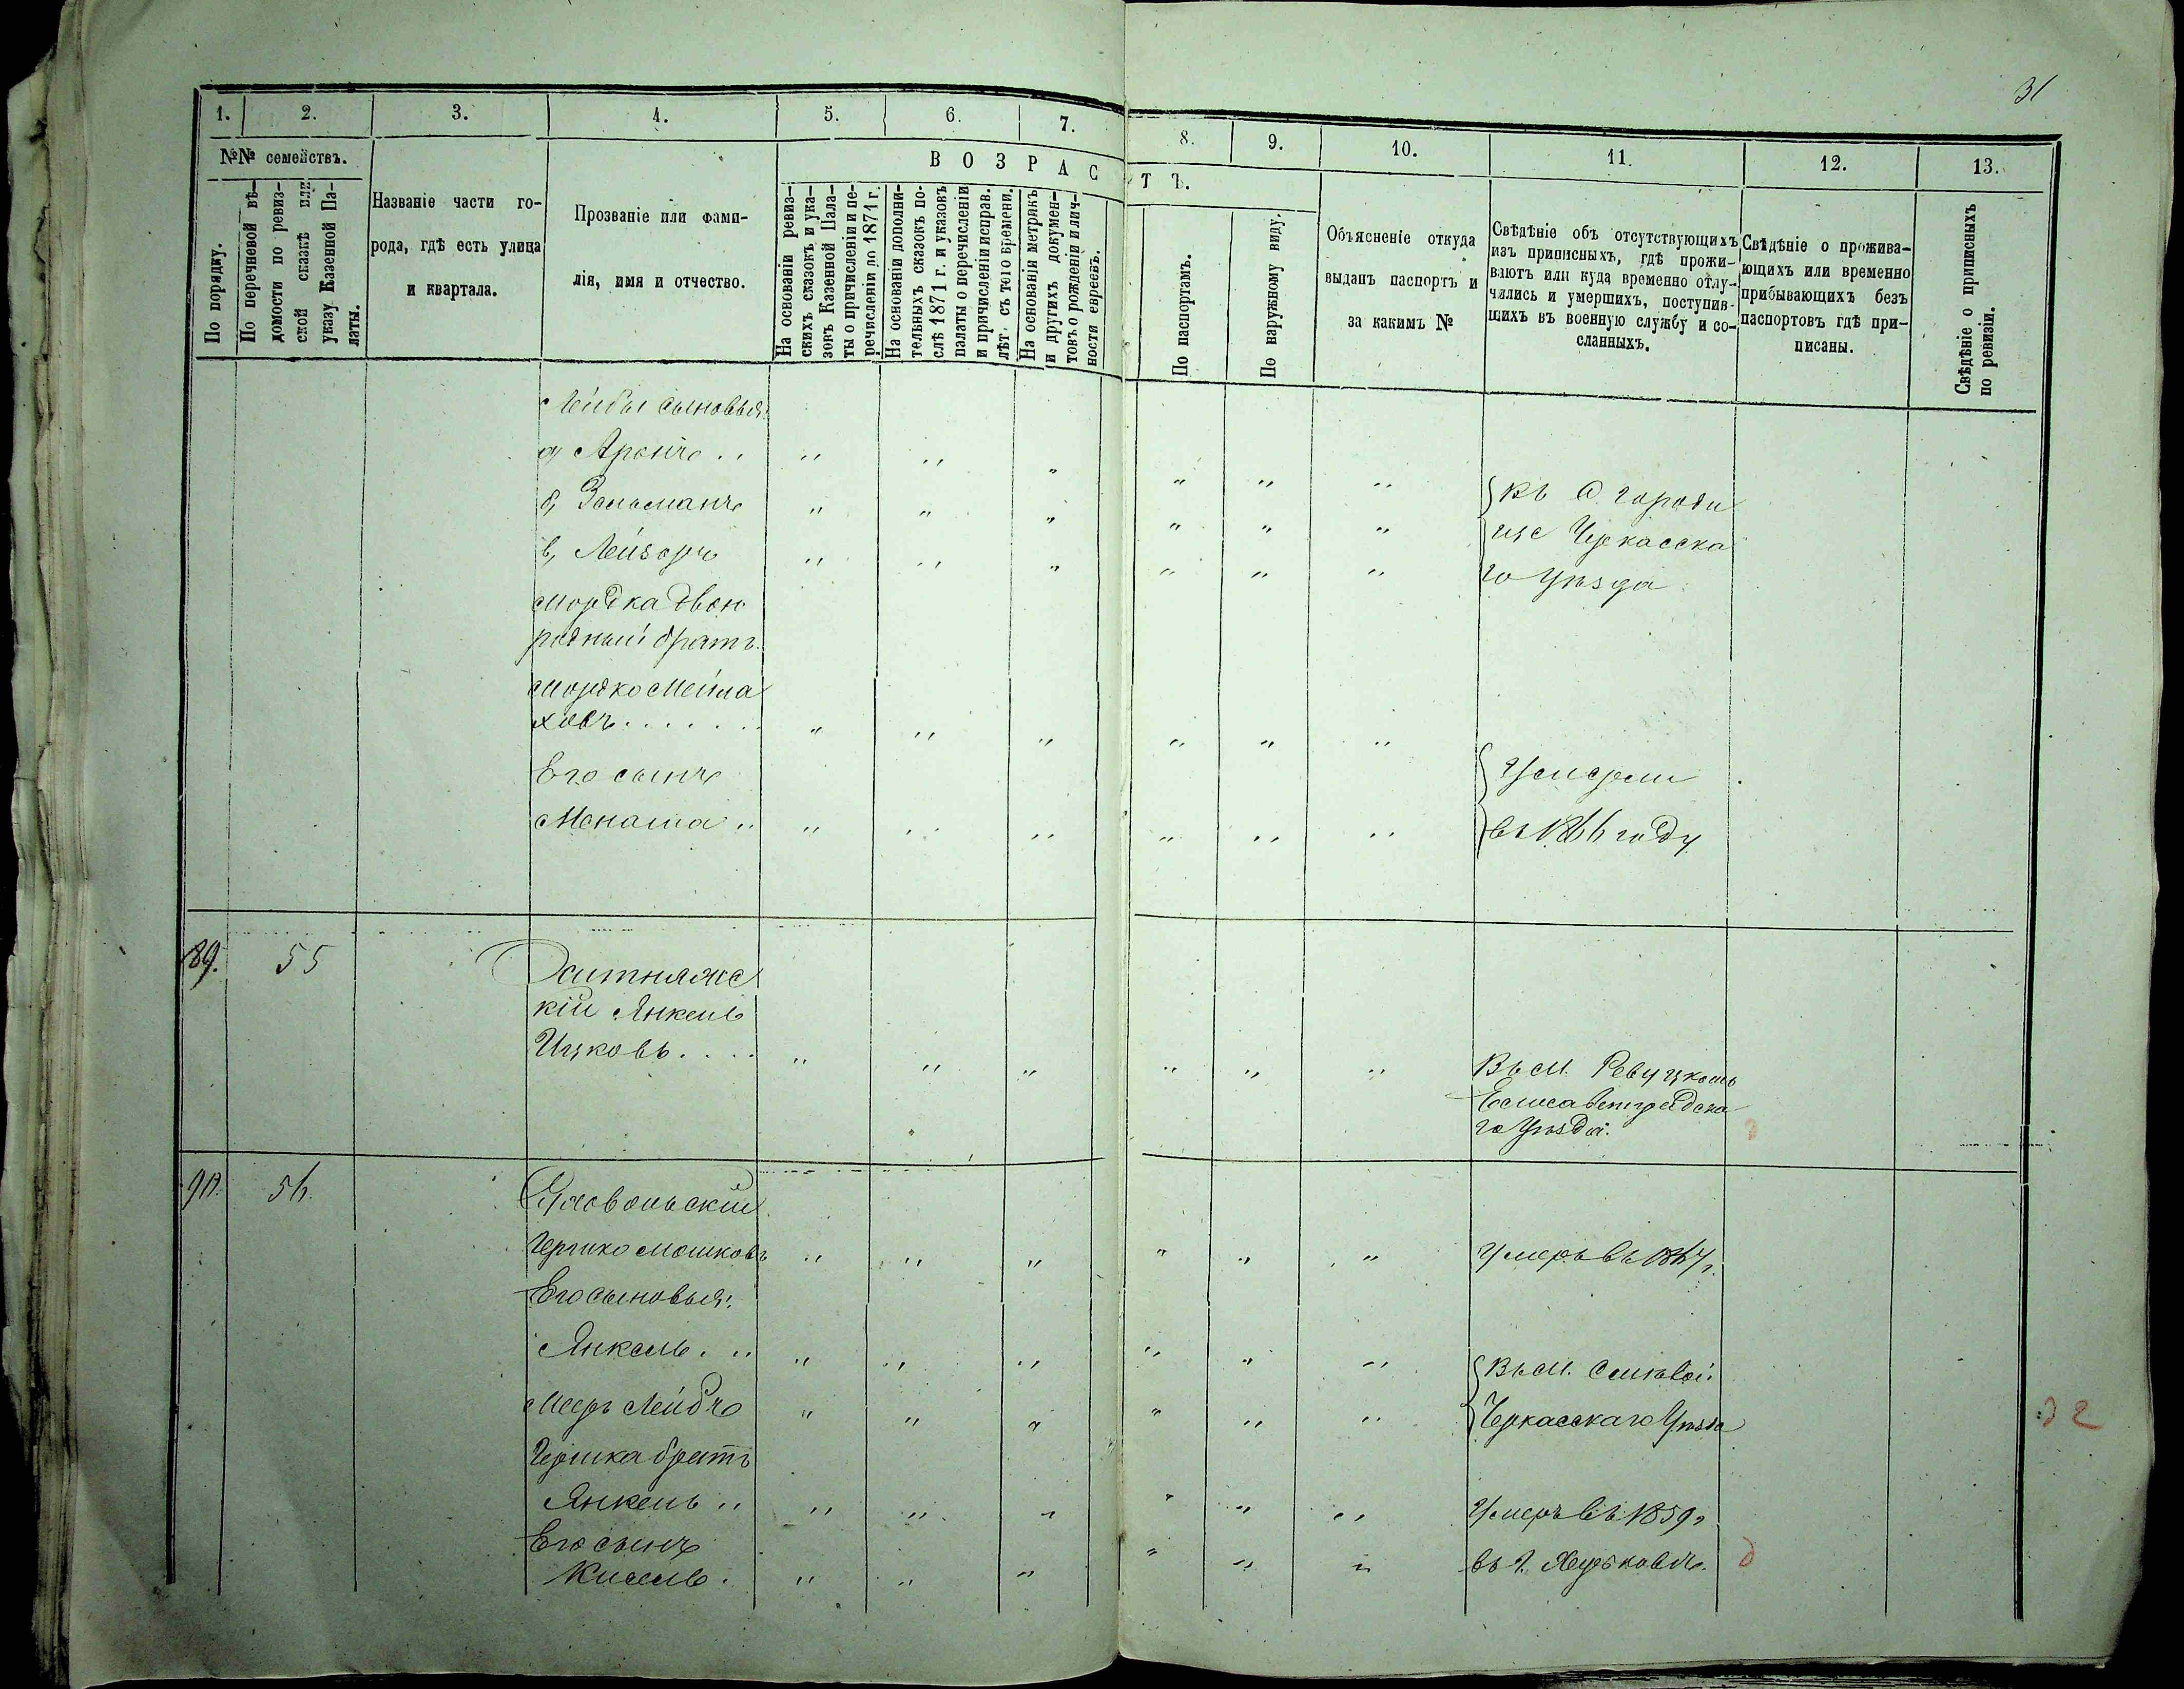 31
1. 2. 3. 4. 5. 6. 7. 8. 9. 10. 11. 12. 13.
№№ семействъ.
По порядку.
По перечневой вѣ-
домости по ревиз-
ской сказкѣ или
указу Казенной Па-
латы.
Названіе части го-
рода, гдѣ есть улица
и квартала.
Прозваніе или фами-
лія, имя и отчество.
ВОЗРАСТЪ.
На основаніи ревиз-
скихъ сказокъ и ука-
зовъ Казенной Пала-
ты о причисленіи и пе-
речисленіи до 1871 г.
На основаніи дополни-
тельныхъ сказокъ по-
слѣ 1871 г. и указовъ
палаты о перечисленіи
и причисленіи исправ.
лѣт. съ того времени.
На основаніи метрикъ
и другихъ докумен-
товъ о рожденіи и лич-
ности евреевъ.
По паспортамъ.
По наружному виду.
Объясненіе откуда
выданъ паспортъ и
за какимъ №
Свѣдѣніе объ отсутствующихъ
изъ приписныхъ, гдѣ прожи-
ваютъ или куда временно отлу-
чились и умершихъ, поступив-
шихъ въ военную службу и со-
сланныхъ.
Свѣдѣніе о прожива-
ющихъ или временно
прибывающихъ безъ
паспортовъ гдѣ при-
писаны.
Свѣдѣніе о приписныхъ
по ревизіи.
Лейбы сыновья
а, Аронъ " " " " " " "
б, Зальманъ " " " " " " въ с. городи
в, Лейзеръ " " " " " " ще Черкасска
го уѣзда
Мордка двою
родный братъ
Мордко Мейла
ховъ " " " " " "
Его сынъ Умерли
Менаша " " " " " " " въ 1866 году
89. 55
кій Янкель
Ицковъ " " " " " " въ м. Ревуцкомъ
Елисаветградска
го уѣзда.
90. 56.
Гершко Мошковъ " " " " " " умеръ въ 1867 г.
Его сыновья:
Янкель " " " " " " " въ м.
Мееръ Лейбъ " " " " " " Черкасскаго уѣзда
Гершка братъ
Янкель " " " " " " " умеръ въ 1859 г
Его сынъ
Кисель " " " " " " въ г.